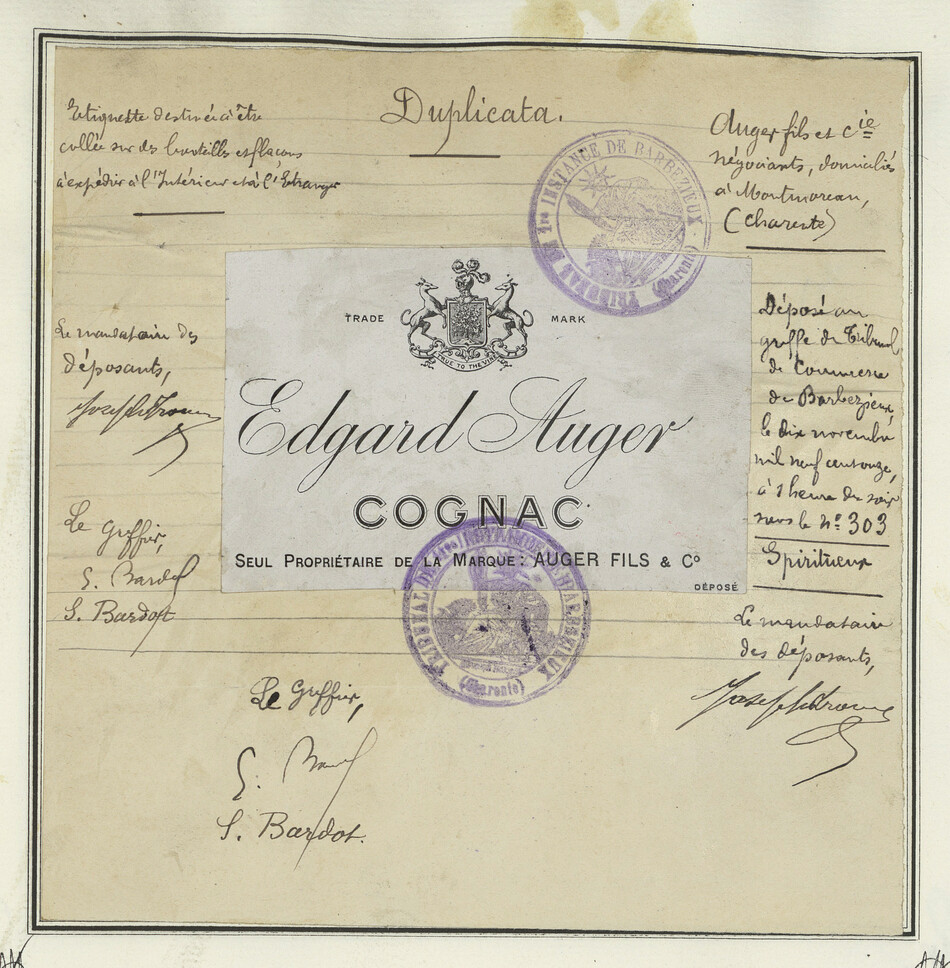 Duplicata.
Etiquette destinée à être
collée sur des bouteilles et flacons
à expédir à l'Intérieur et à l'Etranger
Auger fils et Cie
négociants, domiciliés
à Montmoreau,
(Charente)
TRIBUNAL DE 1re INSTANCE DE BARBEZIEUX
(Charente)
TRADE MARK
TRUE TO THE VINE
Edgard Auger
COGNAC
SEUL PROPRIÉTAIRE DE LA MARQUE: AUGER FILS & Co
DÉPOSÉ
Le mandataire des
déposants,
Le Greffier,
S. Bardot
Déposé au
greffe du Tribunal
de Commerce
de Barbezieux,
le dix novembre
mil neuf cent onze,
à 1 heure du soir
sous le No 303
Spiritueux
Le mandataire
des déposants,
TRIBUNAL DE 1re INSTANCE DE BARBEZIEUX
(Charente)
Le Greffier,
S. Bardot.